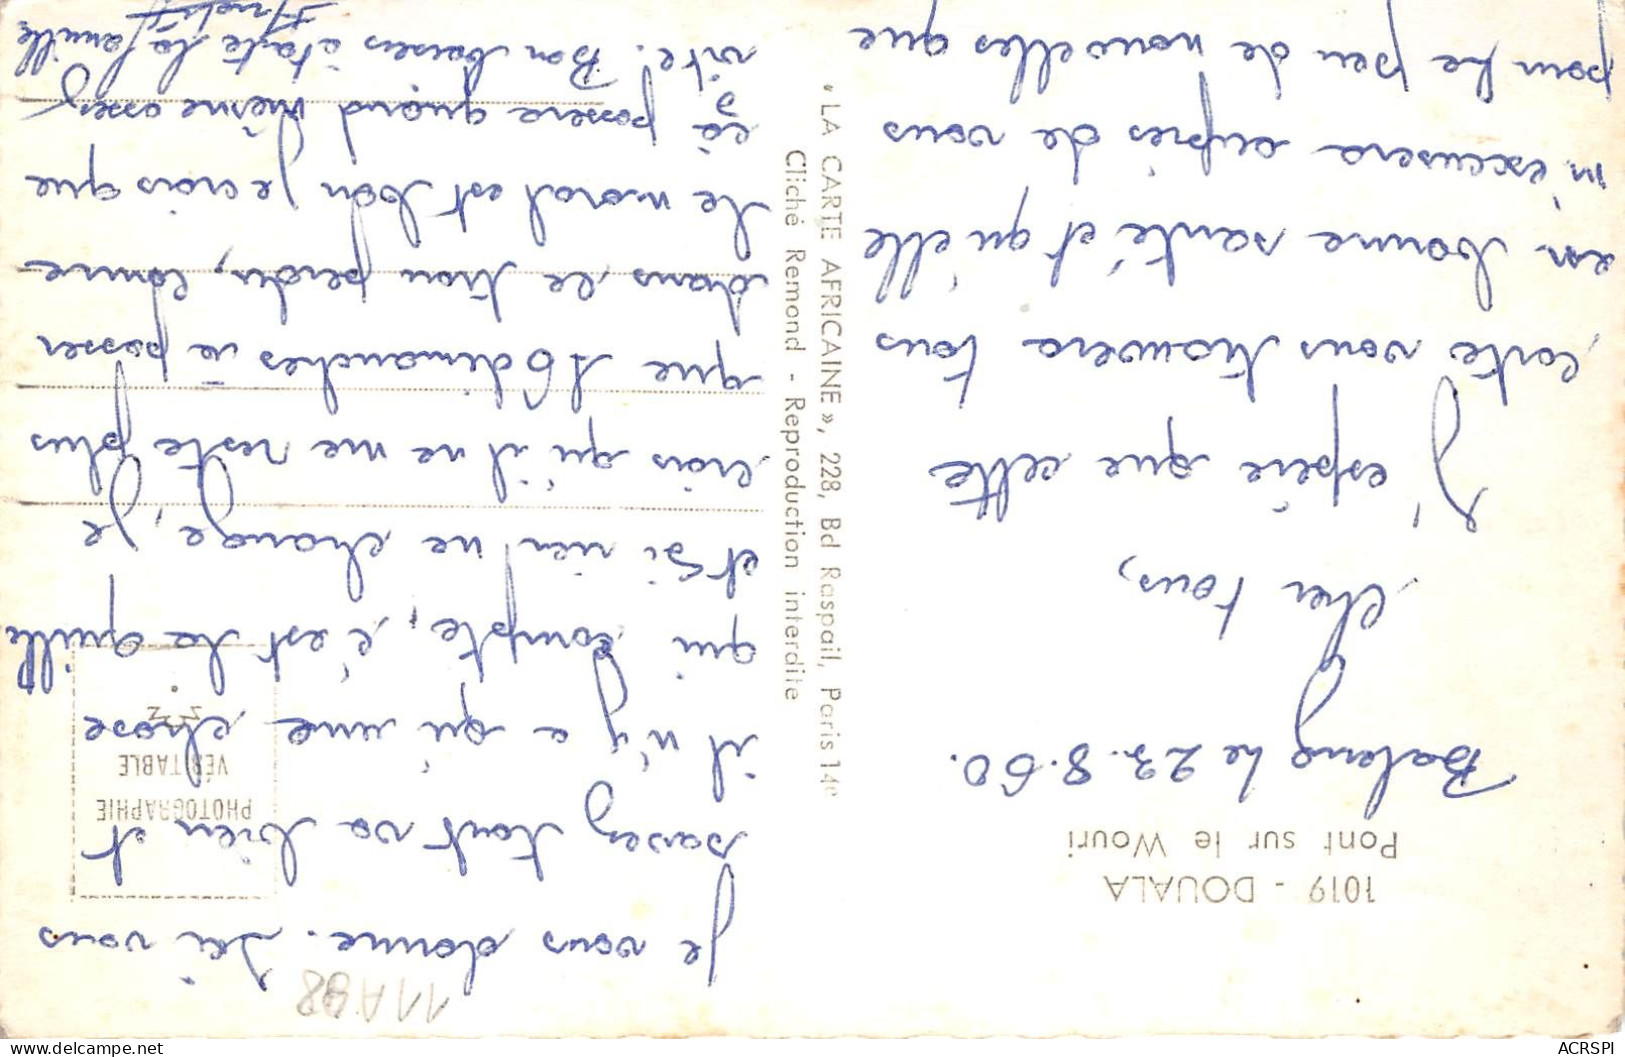 1019 - DOUALA
Pont sur le Wouri
Baleng le 23.8.60.
Cher tous,
J'espère que cette
carte vous trouvera tous
en bonne santé et qu'elle
m'excusera auprès de vous
pour le peu de nouvelles que
je vous donne. Ici vous
savez tout va bien et
il n'y a qu'une chose
qui compte, c'est la quille
et si rien ne change, je
crois qu'il ne me reste plus
que 16 dimanches à passer
dans ce trou perdu, comme
le moral est bon je crois que
çà passera quand même assez
vite. Bon baisers à toute la famille
« LA CARTE AFRICAINE », 228, Bd Raspail, Paris 14e
Cliché Remond - Reproduction interdite
PHOTOGRAPHIE
VÉRITABLE
11A98
ACRSPI